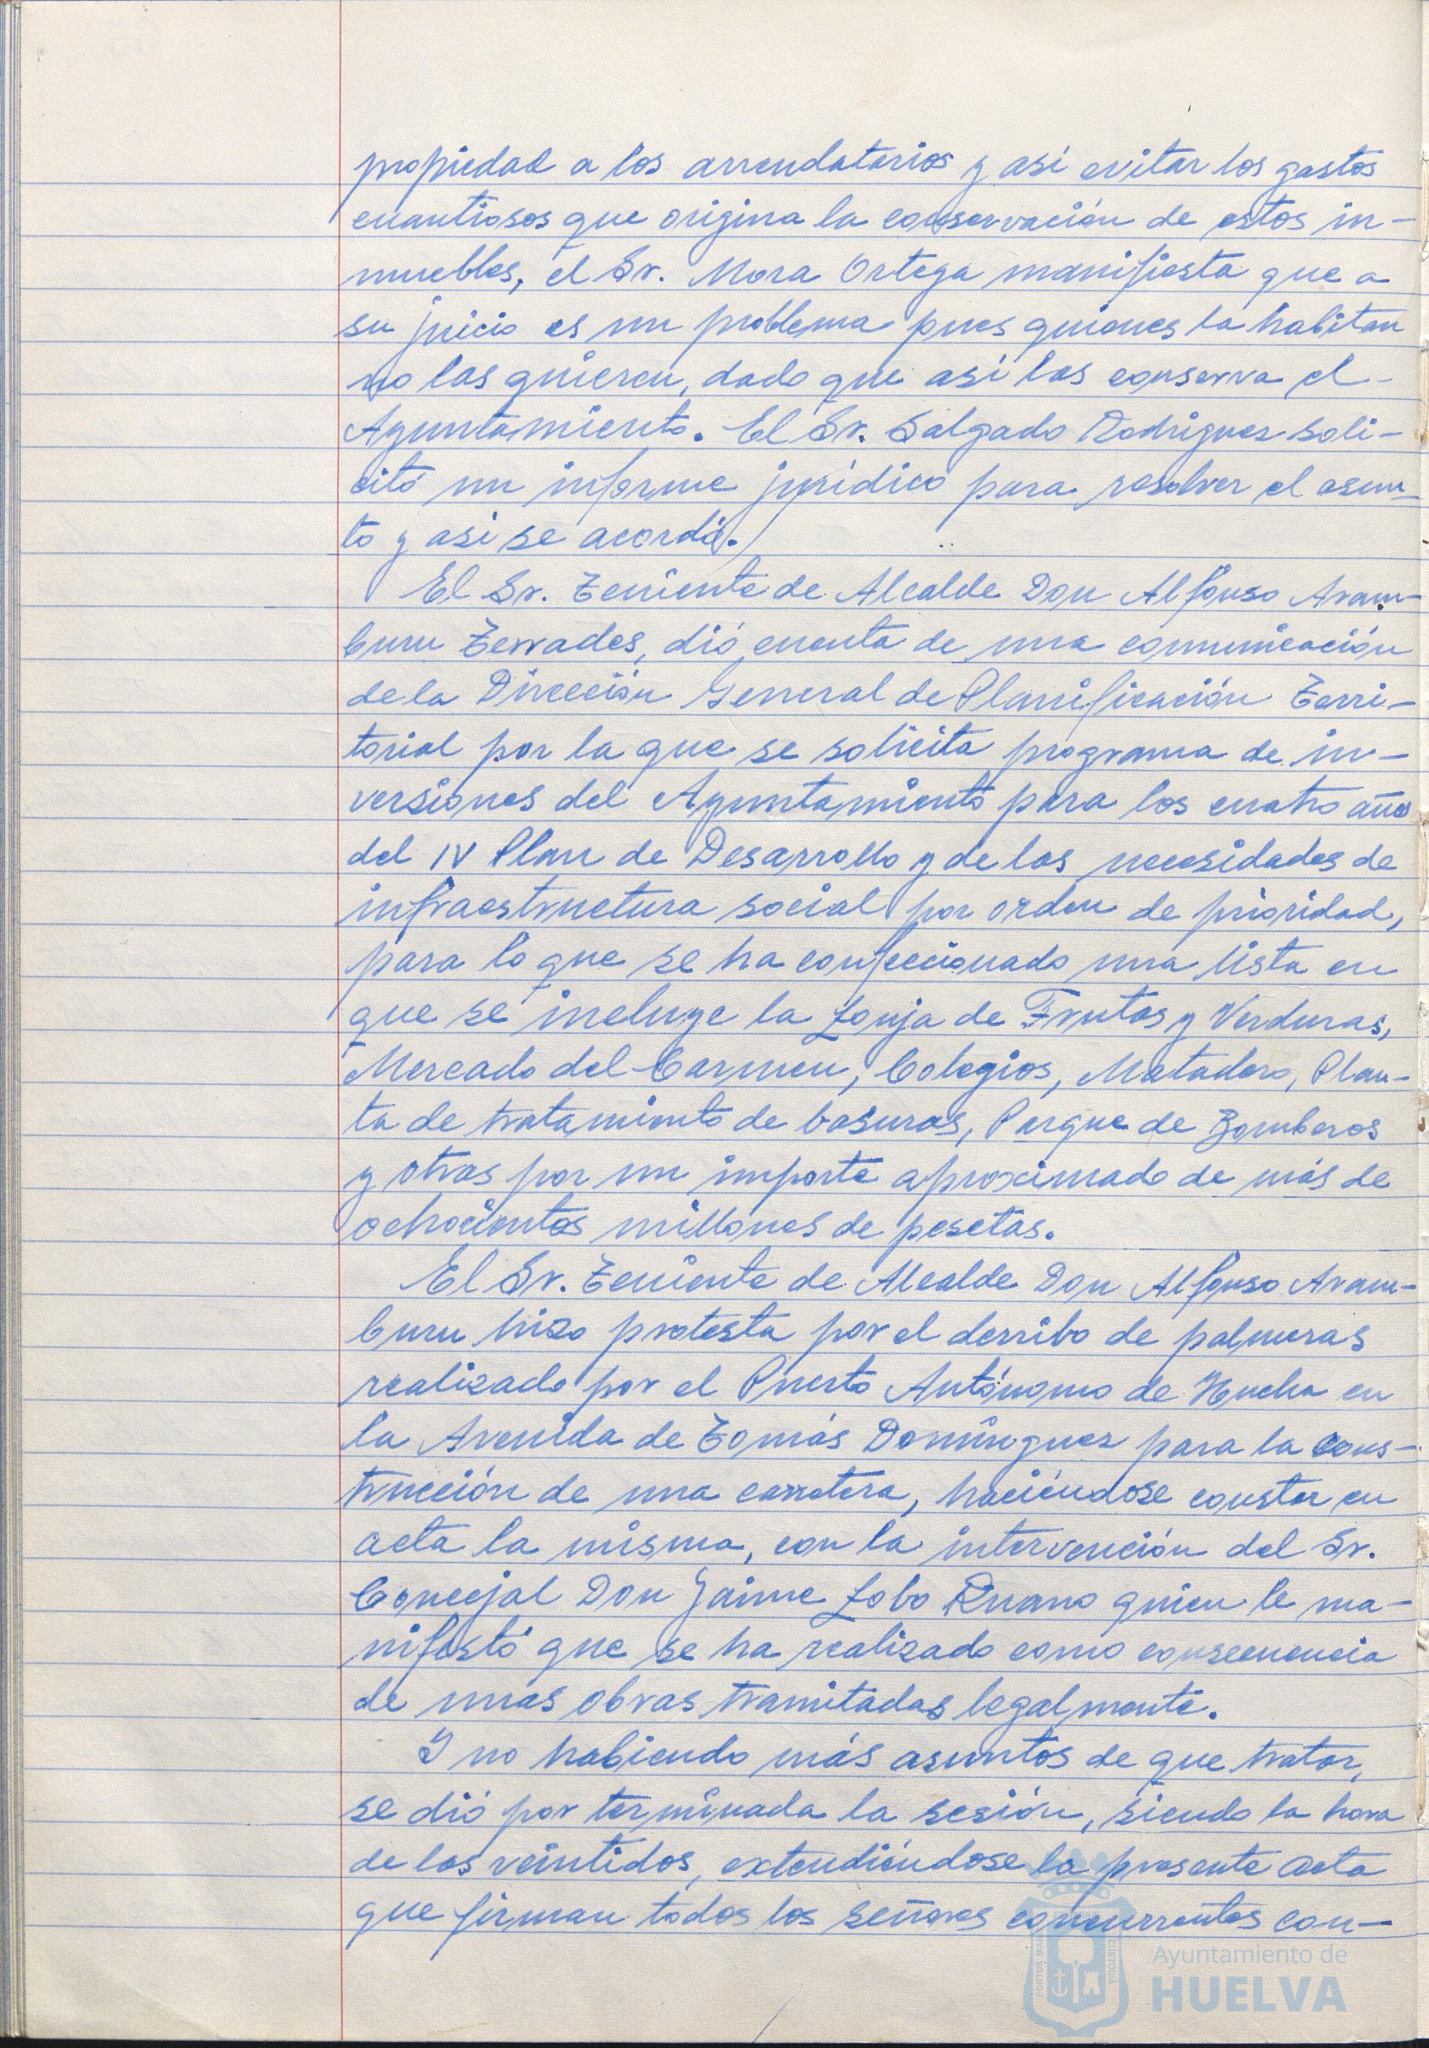 propiedad a los arrendatarios y así evitar los gastos
cuantiosos que origina la conservación de estos in-
muebles, el Sr. Mora Ortega manifiesta que a
su juicio es un problema pues quienes la habitan
no las quieren, dado que así las conserva el
Ayuntamiento. El Sr. Salgado Rodriguez soli-
citó un informe jurídico para resolver el asun-
to y asi se acordó.
El Sr. Teniente de Alcalde Don Alfonso Aram-
buru Terrades, dió cuenta de una comunicación
de la Dirección General de Planificación Terri-
torial por la que se solicita programa de in-
versiones del Ayuntamiento para los cuatro años
del IV Plan de Desarrollo y de las necesidades de
infraestructura social por orden de prioridad,
para lo que se ha confeccionado una lista en
que se incluye la Lonja de Frutas y Verduras,
Mercado del Carmen, Colegios, Matadero, Plan-
ta de tratamiento de basuras, Parque de Bomberos
y otras por un importe aproximado de más de
ochocientos millones de pesetas.
El Sr. Teniente de Alcalde Don Alfonso Aram-
buru hizo protesta por el derribo de palmeras
realizado por el Puerto Autónomo de Huelva en
la Avenida de Tomás Domínguez para la cons-
trucción de una carretera, haciéndose constar en
acta la misma, con la intervención del Sr.
Concejal Don Jaime Lobo Ruano quien le ma-
nifestó que se ha realizado como consecuencia
de unas obras tramitadas legalmente.
Y no habiendo más asuntos de que tratar,
se dió por terminada la sesión, siendo la hora
de las veintidos, extendiéndose la presente acta
que firman todos los señores concurrentes con-
Ayuntamiento de
HUELVA